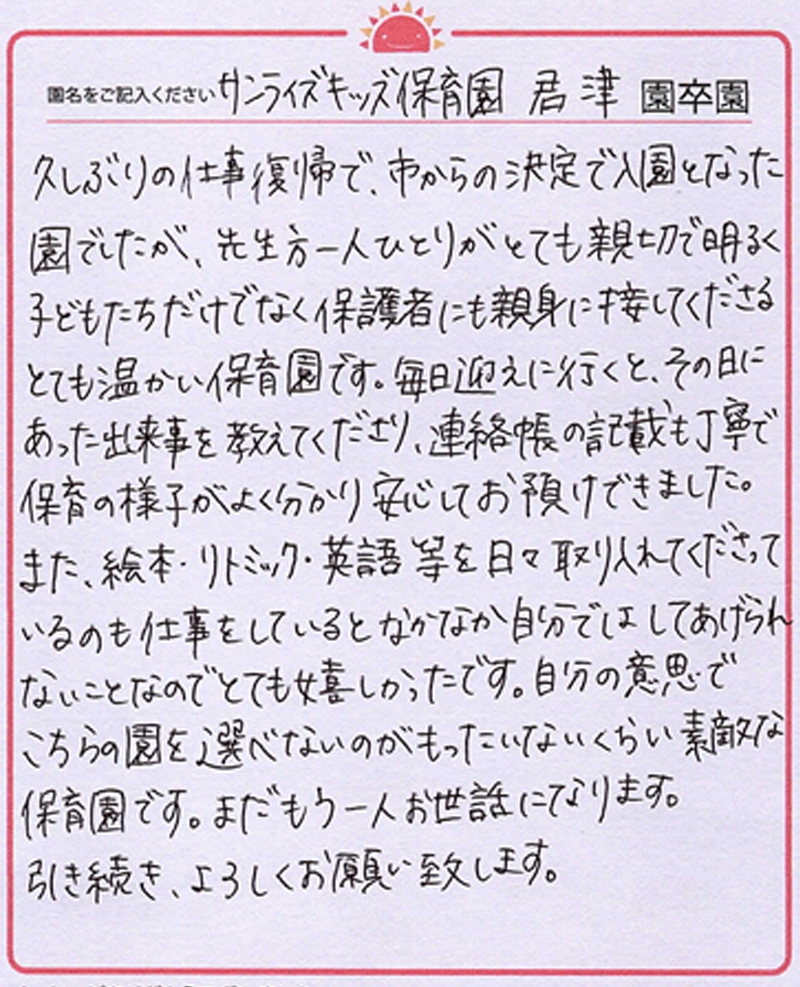 園名をご記入ください サンライズキッズ保育園 君津 園卒園
久しぶりの仕事復帰で、市からの決定で入園となった
園でしたが、先生方一人ひとりがとても親切で明るく
子どもたちだけでなく保護者にも親身に接してくださる
とても温かい保育園です。毎日迎えに行くと、その日に
あった出来事を教えてくださり、連絡帳の記載も丁寧で
保育の様子がよく分かり安心してお預けできました。
また、絵本・リトミック・英語等を日々取り入れてくださって
いるのも仕事をしているとなかなか自分ではしてあげられ
ないことなのでとても嬉しかったです。自分の意思で
こちらの園を選べないのがもったいないくらい素敵な
保育園です。まだもう一人お世話になります。
引き続き、よろしくお願い致します。